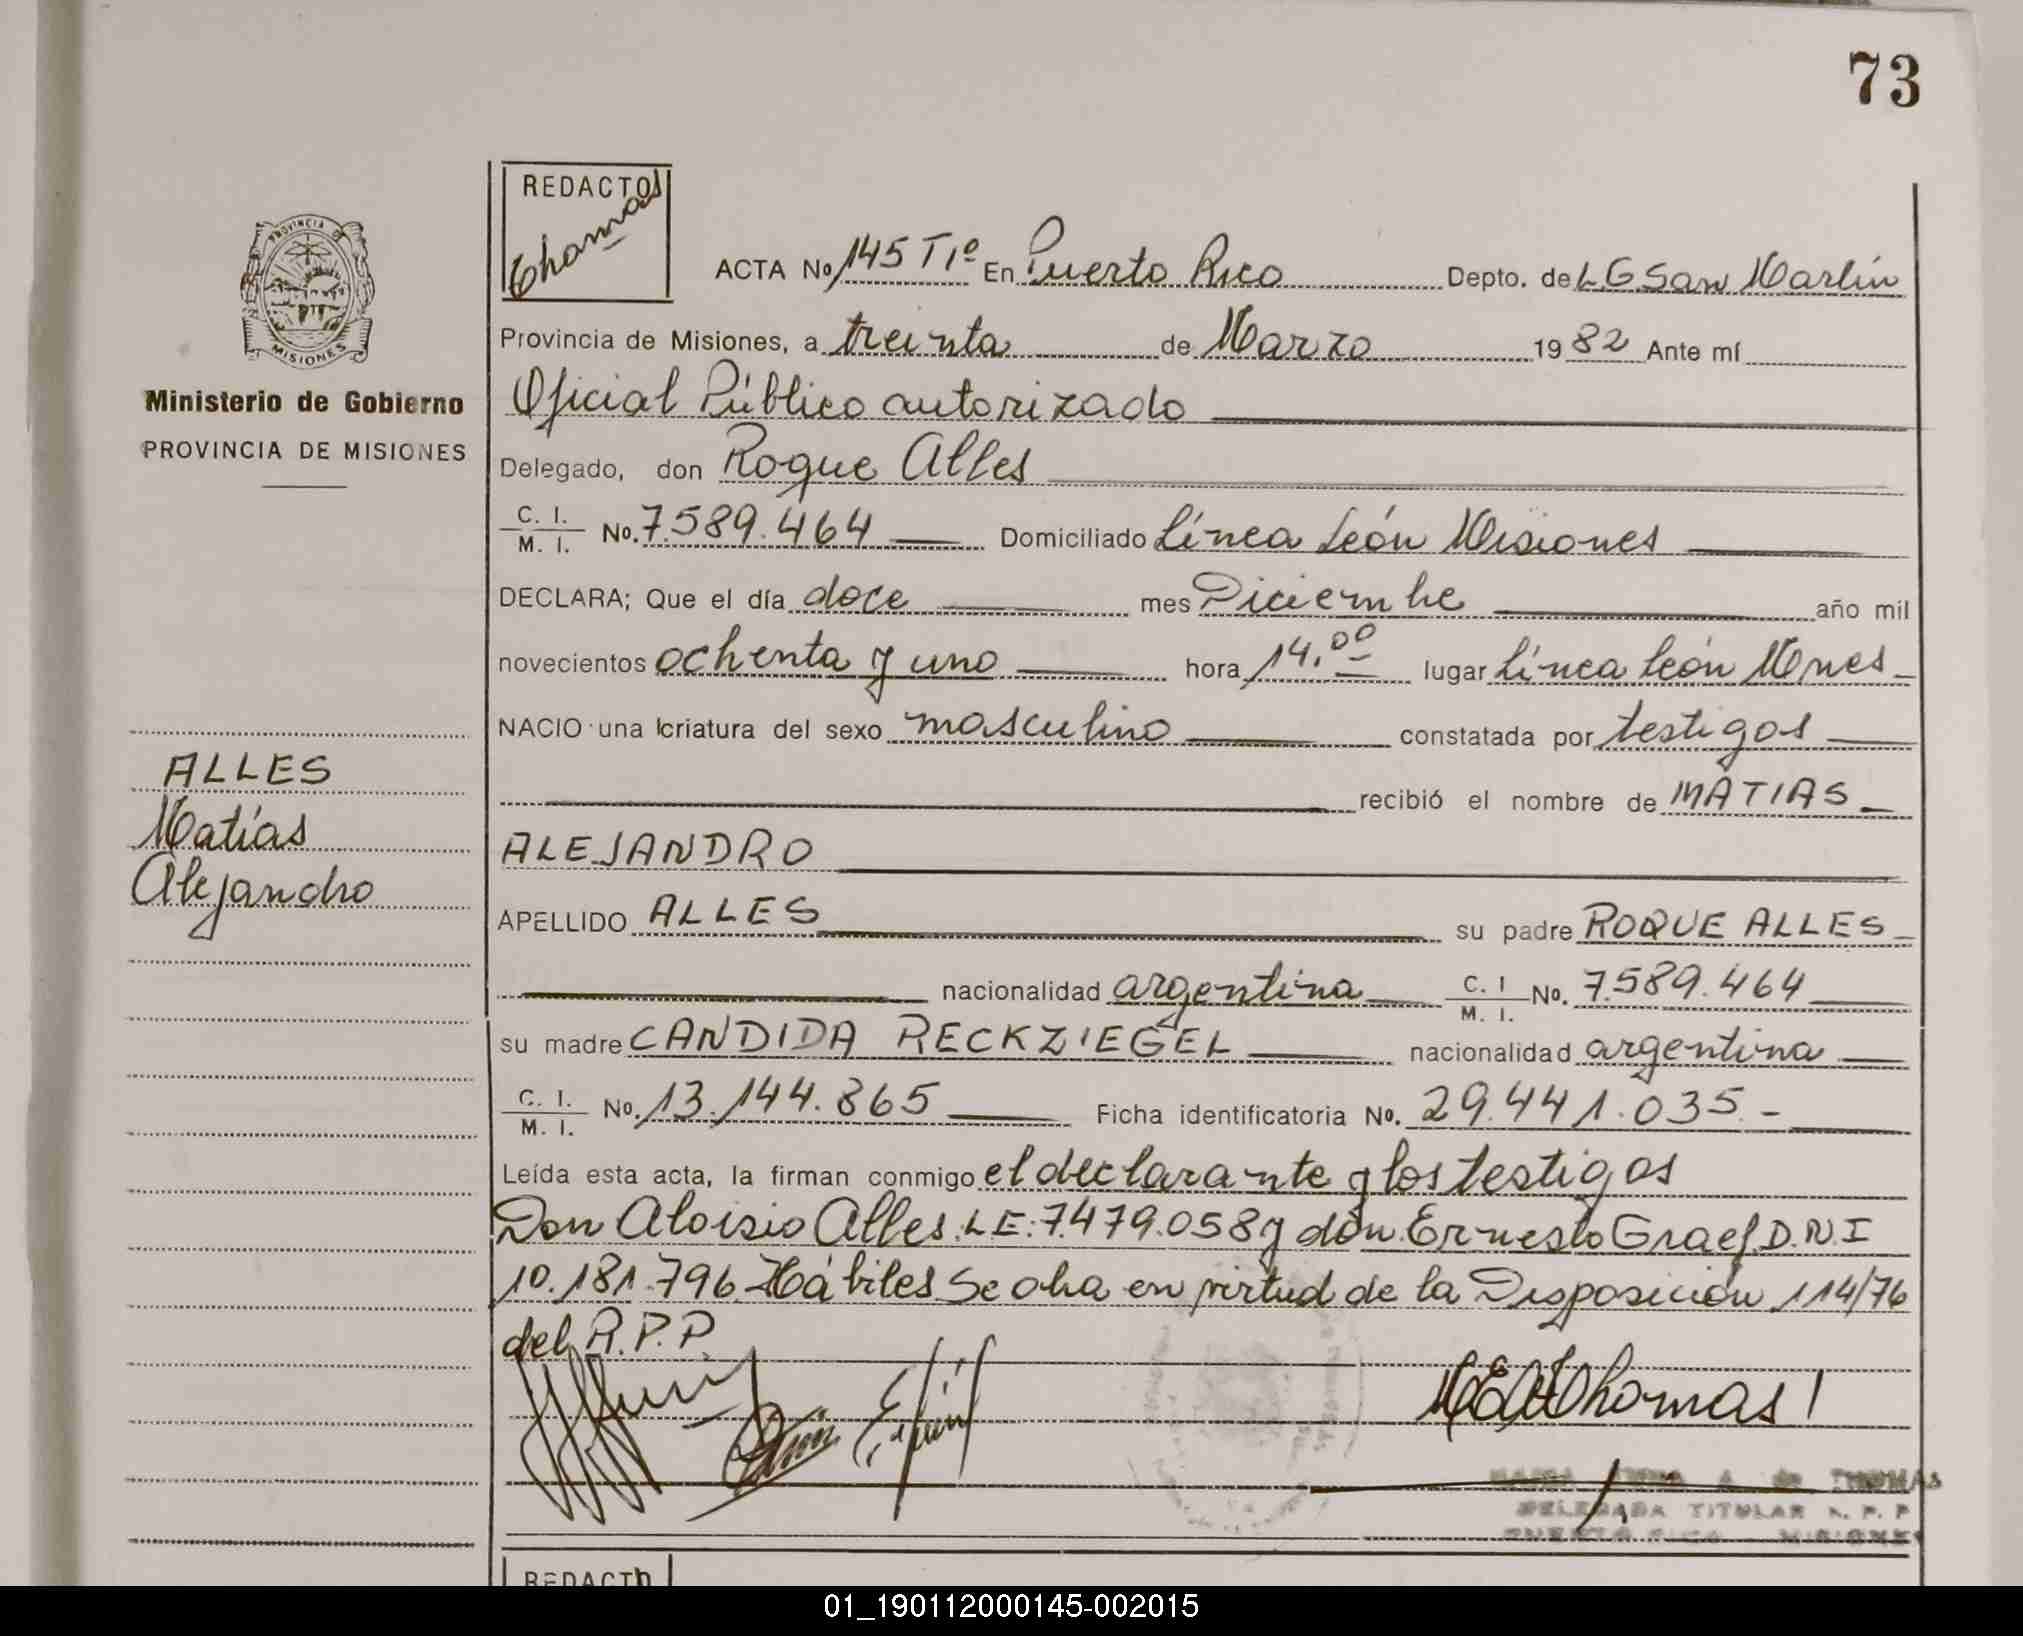 73
REDACTO
Thomas
PROVINCIA DE
MISIONES
Ministerio de Gobierno
PROVINCIA DE MISIONES
ACTA No 145 T1º En Puerto Rico Depto. de L G San Martín
Provincia de Misiones, a treinta de Marzo 1982 Ante mí
Oficial Público autorizado
Delegado, don Roque Alles
C. I. / M. I. No. 7.589.464 Domiciliado Línea León Misiones
DECLARA; Que el día doce mes Diciembre año mil
novecientos ochenta y uno hora 14,00 lugar Línea León Mnes
NACIO una criatura del sexo masculino constatada por testigos
recibió el nombre de MATIAS
ALEJANDRO
APELLIDO ALLES su padre ROQUE ALLES
nacionalidad argentina C. I / M. I. No. 7.589.464
su madre CANDIDA RECKZIEGEL nacionalidad argentina
C. I. / M. I. No. 13.144.865 Ficha identificatoria No. 29.441.035.-
Leída esta acta, la firman conmigo el declarante y los testigos
Don Aloisio Alles. L E: 7.479.058 y don Ernesto Graef. D.N.I
10.181.796 Hábiles Se oha en virtud de la Disposición 114/76
del R.P.P.
ALLES
Matías
Alejandro
Thomas
A. de THOMAS
DELEGADA TITULAR R. P. P
PUERTO RICO - MISIONES
REDACTO
01_190112000145-002015